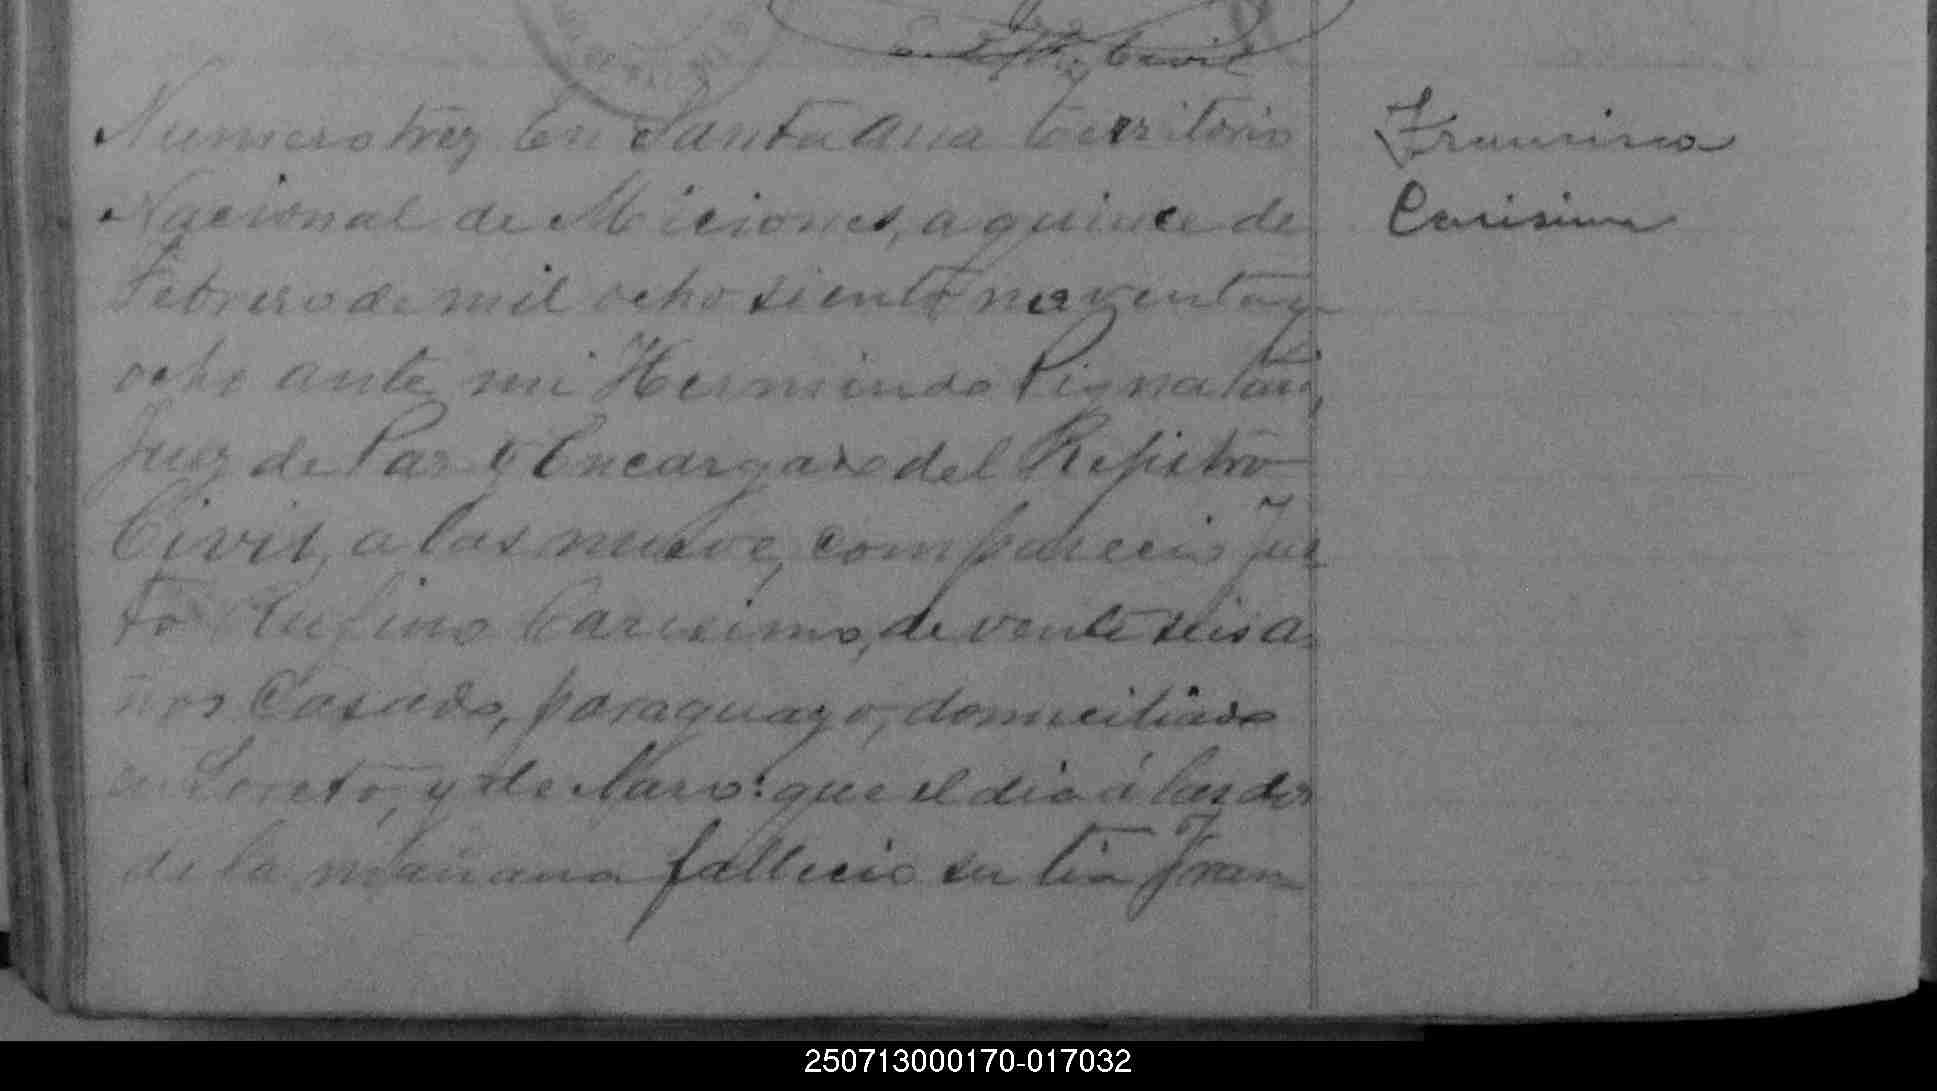 Civil
Numero trez En Santa Ana Territorio
Nacional de Miciones, a quince de
Febrero de mil ocho siento noventa y
ocho ante mi Hermindo Pignatari,
Juez de Paz y Encargado del Rejistro
Civil, a las nueve, comparecio Jus
to Rufino Carisimo, de vente seis a
ños Casado, paraguayo, domiciliado
en Loreto, y de Claro: que el dia á las dos
de la mañana fallecio su tia Fran
Francisca
Carisimo
250713000170-017032